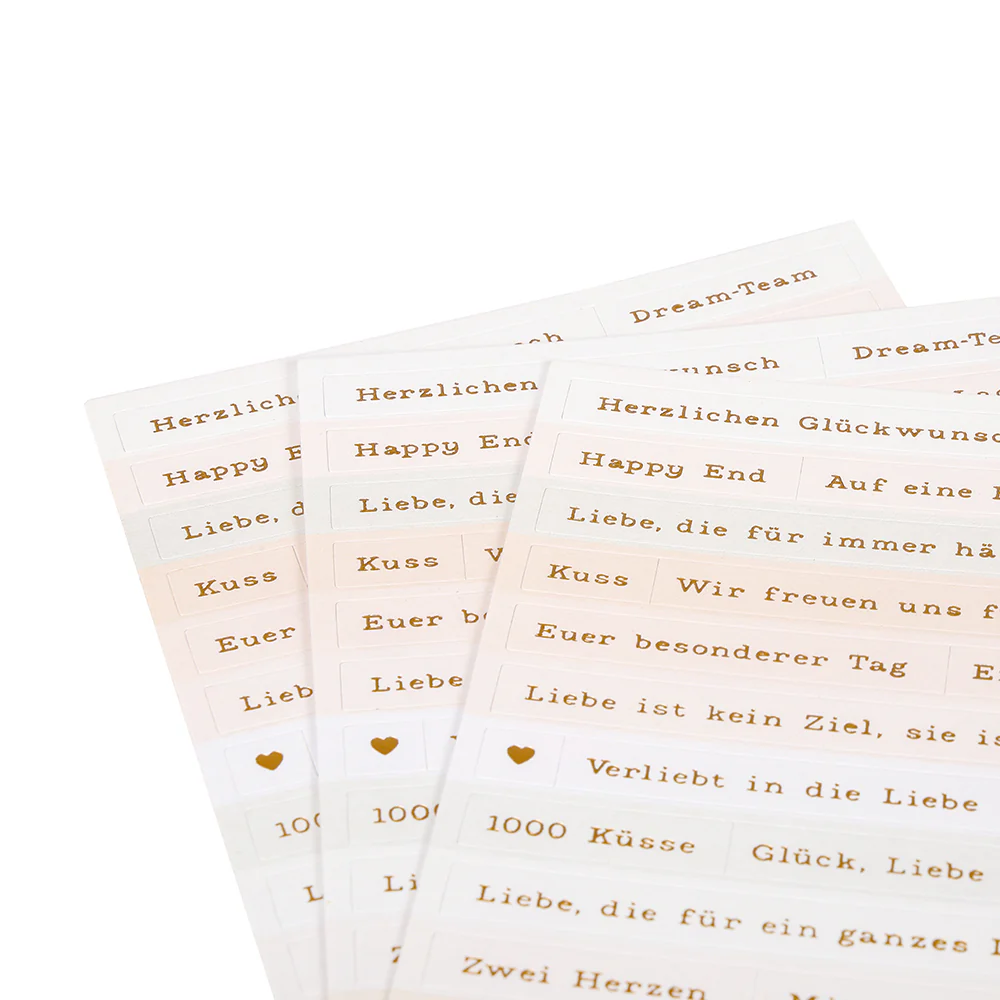 Dream-Team
Herzlich
Happy
Liebe,
Kuss
Euer
Lieb
Dream-Te
Herzlichen unsch
Happy End
Liebe, die
Kuss
Euer
Liebe
Herzlichen Glückwunsc
Happy End Auf eine
Liebe, die für immer hä
Kuss Wir freuen uns f
Euer besonderer Tag E
Liebe ist kein Ziel, sie is
Verliebt in die Liebe
1000 Küsse Glück, Liebe
Liebe, die für ein ganzes
Zwei Herzen